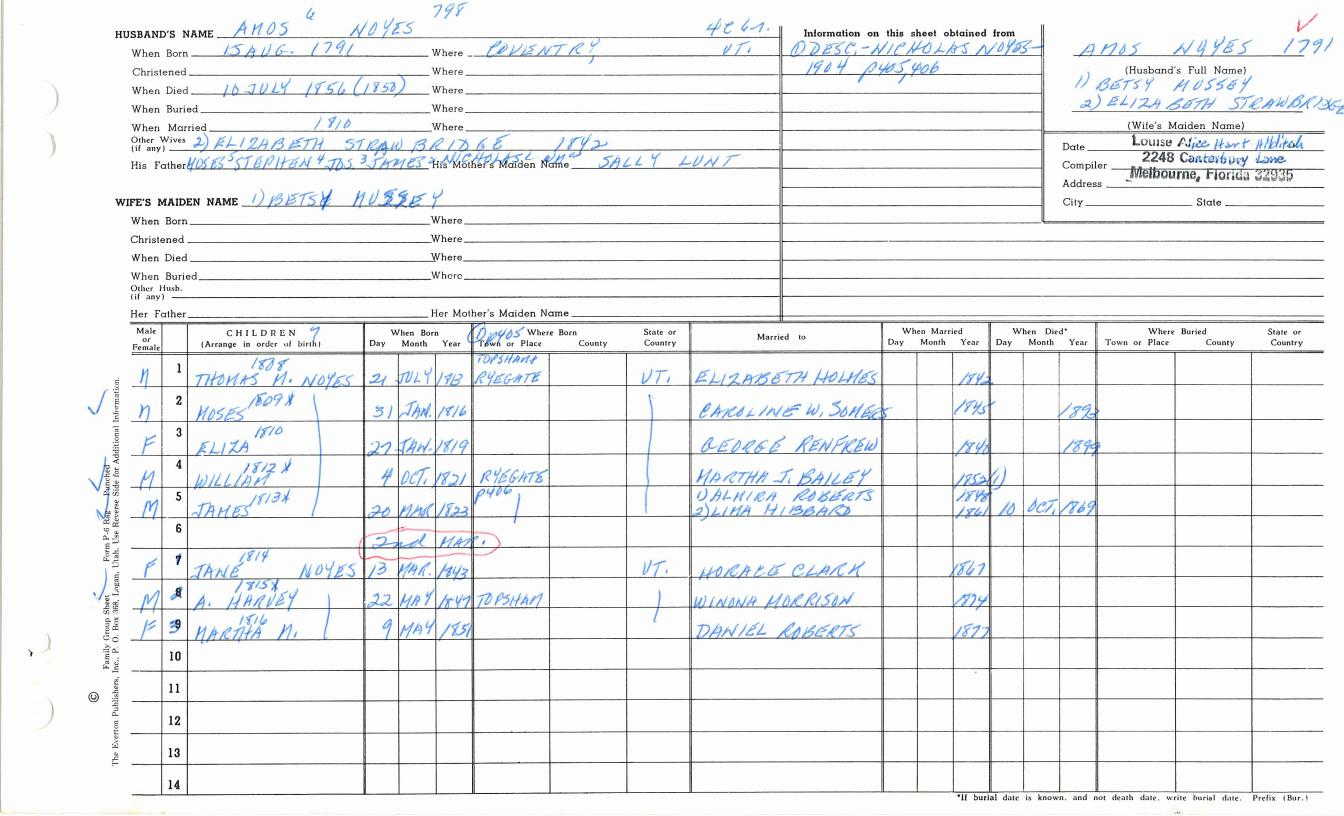 6 798
HUSBAND'S NAME AMOS NOYES
When Born 15 AUG. 1791 Where COVENTRY, VT.
Christened Where
When Died 10 JULY 1856 (1850) Where
When Buried Where
When Married 1810 Where
Other Wives (if any) 2) ELIZABETH STRAWBRIDGE 1842
His Father MOSES 5 STEPHEN 4 JOS. 3 JAMES 2 NICHOLAS 1 His Mother's Maiden Name SALLY LUNT
WIFE'S MAIDEN NAME 1) BETSY MUSSEY
When Born Where
Christened Where
When Died Where
When Buried Where
Other Husb. (if any)
Her Father Her Mother's Maiden Name
Information on this sheet obtained from
① DESC.-NICHOLAS NOYES-
1904 p405,406
AMOS NOYES 1791
(Husband's Full Name)
1) BETSY MUSSEY
2) ELIZABETH STRAWBRIDGE
(Wife's Maiden Name)
Date Louise Alice Hart
Compiler 2248 Canterbury Lane
Address Melbourne, Florida 32935
City State
Male or Female CHILDREN (Arrange in order of birth) When Born Day Month Year ① p405 Where Born Town or Place County State or Country Married to When Married Day Month Year When Died* Day Month Year Where Buried Town or Place County State or Country
1808 TOPSHAM
M 1 THOMAS M. NOYES 21 JULY 1813 RYEGATE VT. ELIZABETH HOLMES 1842
1809 X
M 2 MOSES 31 JAN. 1816 CAROLINE W. SOMERS 1845 1892
1810
F 3 ELIZA 27 JAN. 1819 GEORGE RENFREW 1840 1899
1812 X
M 4 WILLIAM 4 OCT. 1821 RYEGATE MARTHA J. BAILEY 1852 (1)
1813 X p406 1) ALMIRA ROBERTS 1848
M 5 JAMES 20 MAR 1823 2) LIMA HIBBARD 1861 10 OCT. 1869
6 2nd MAR.
1814
F 7 JANE NOYES 13 MAR. 1843 VT. HORACE CLARK 1867
1815 X
M 8 A. HARVEY 22 MAY 1847 TOPSHAM WINONA MORRISON 1874
1816
F 9 MARTHA M. 9 MAY 1851 DANIEL ROBERTS 1877
10
11
12
13
14
*If burial date is known, and not death date, write burial date. Prefix (Bur.)
© Family Group Sheet Form P-6 Reg. Punched
The Everton Publishers, Inc., P. O. Box 368, Logan, Utah. Use Reverse Side for Additional Information.